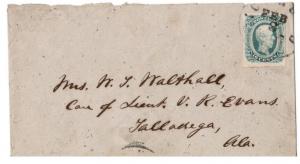 FEB
Mrs. W. T. Walthall,
Care of Lieut. V. R. Evans.
Talladega,
Ala.